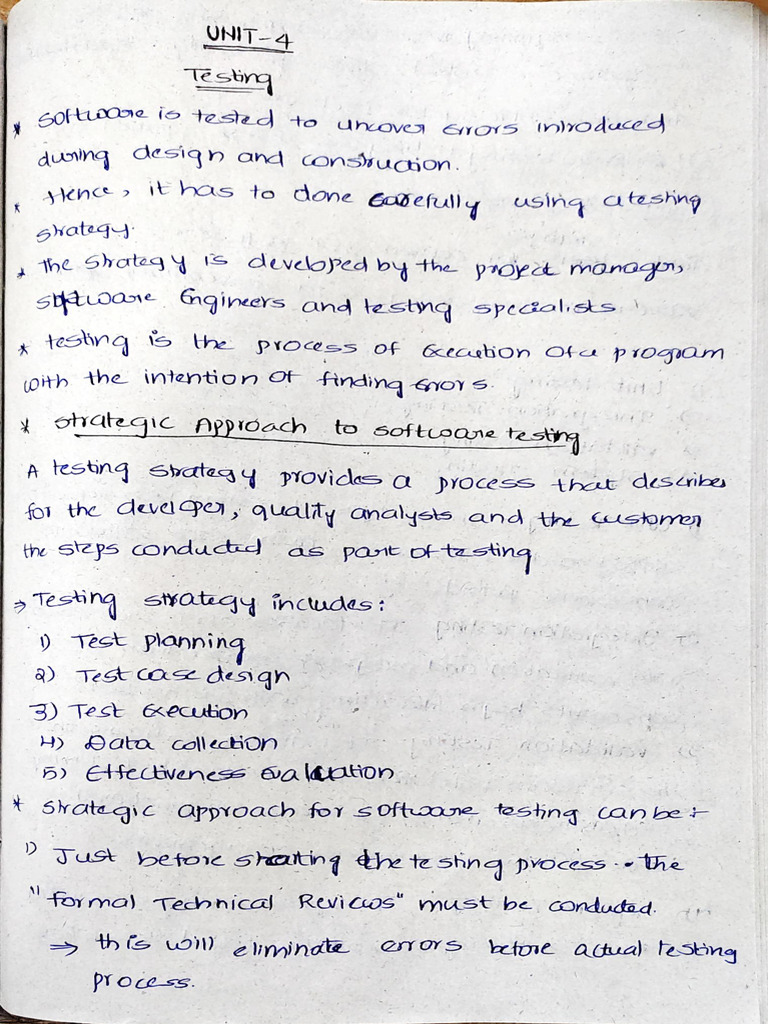 UNIT-4
Testing
* Software is tested to uncover errors introduced
during design and construction.
* Hence, it has to done carefully using a testing
strategy.
* The strategy is developed by the project manager,
software Engineers and testing specialists
* testing is the process of Execution of a program
with the intention of finding errors.
* Strategic Approach to software testing
A testing strategy provides a process that describes
for the developer, quality analysts and the customer
the steps conducted as part of testing
⇒ Testing strategy includes:
1) Test planning
2) Test case design
3) Test Execution
4) Data collection
5) Effectiveness Evaluation
* Strategic approach for software testing can be :-
1) Just before starting the testing process. The
"formal Technical Reviews" must be conducted.
⇒ this will eliminate errors before actual testing
process.